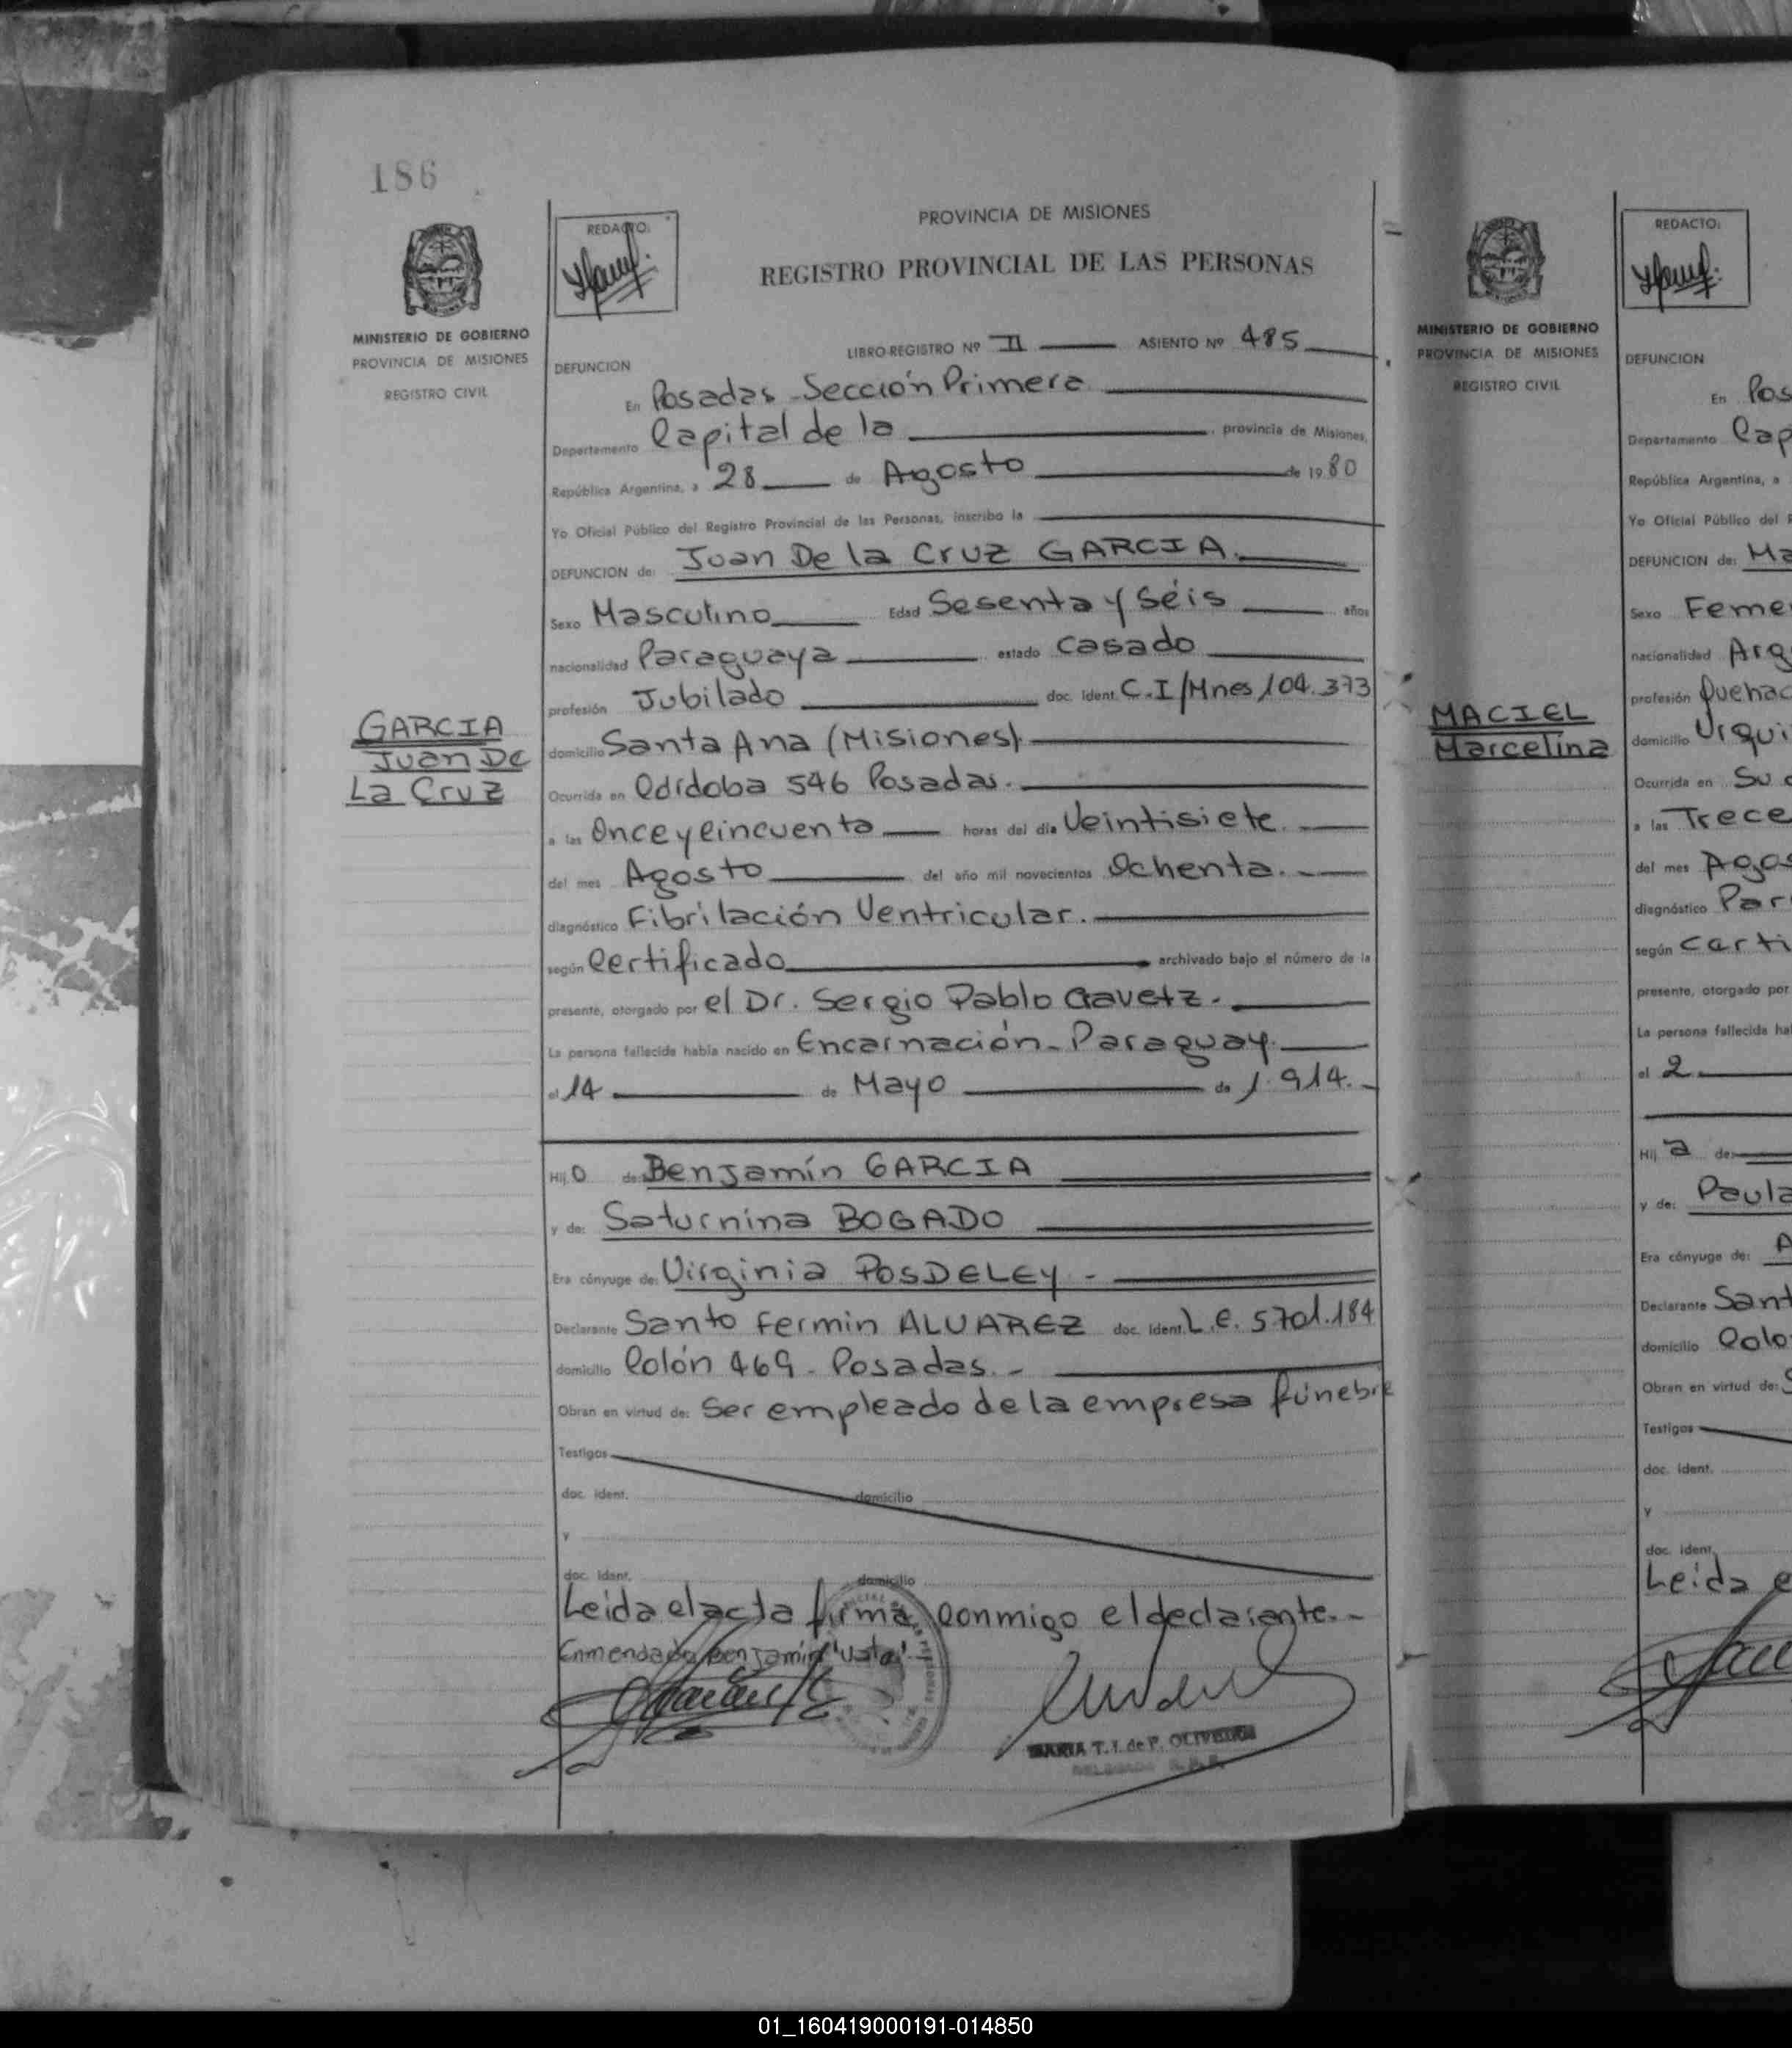 186
MINISTERIO DE GOBIERNO
PROVINCIA DE MISIONES
REGISTRO CIVIL
GARCIA
Juan De
La Cruz
REDACTO:
PROVINCIA DE MISIONES
REGISTRO PROVINCIAL DE LAS PERSONAS
LIBRO-REGISTRO Nº II ASIENTO Nº 485
DEFUNCION
En Posadas Sección Primera
Departamento Capital de la provincia de Misiones,
República Argentina, a 28 de Agosto de 1980
Yo Oficial Público del Registro Provincial de las Personas, inscribo la
DEFUNCION de: Juan De la Cruz GARCIA.
Sexo Masculino Edad Sesenta y Séis años
nacionalidad Paraguaya estado casado
profesión Jubilado doc. ident. C.I/Mnes 104.373
domicilio Santa Ana (Misiones).
Ocurrida en Córdoba 546 Posadas.
a las Once y Cincuenta horas del día Veintisiete.
del mes Agosto del año mil novecientos Ochenta.
diagnóstico Fibrilación Ventricular.
según Certificado archivado bajo el número de la
presente, otorgado por el Dr. Sergio Pablo Gavetz.
La persona fallecida había nacido en Encarnación - Paraguay.
el 14 de Mayo de 1.914.-
Hijo de: Benjamín GARCIA
y de: Saturnina BOGADO
Era cónyuge de: Virginia POSDELEY -
Declarante Santo Fermin ALVAREZ doc. ident. L.E. 5701.184
domicilio Colón 469 - Posadas. -
Obran en virtud de: Ser empleado de la empresa fúnebre
Testigos
doc. ident. domicilio
y
doc. ident. domicilio
Leida el acta firma conmigo el declarante.-
Enmendado Benjamín "Vale".
MARIA T. I. de P. OLIVEIRA
MINISTERIO DE GOBIERNO
PROVINCIA DE MISIONES
REGISTRO CIVIL
MACIEL
Marcelina
REDACTO:
DEFUNCION
En Pos
Departamento Cap
República Argentina, a
Yo Oficial Público del R
DEFUNCION de: Ma
Sexo Feme
nacionalidad Arg
profesión Quehac
domicilio Urqui
Ocurrida en Su
a las Trece
del mes Agos
diagnóstico Par
según Certi
presente, otorgado por
La persona fallecida ha
el 2
Hija de:
y de: Paula
Era cónyuge de: A
Declarante Sant
domicilio Colo
Obran en virtud de: S
Testigos
doc. ident.
y
doc. ident.
Leida e
01_160419000191-014850